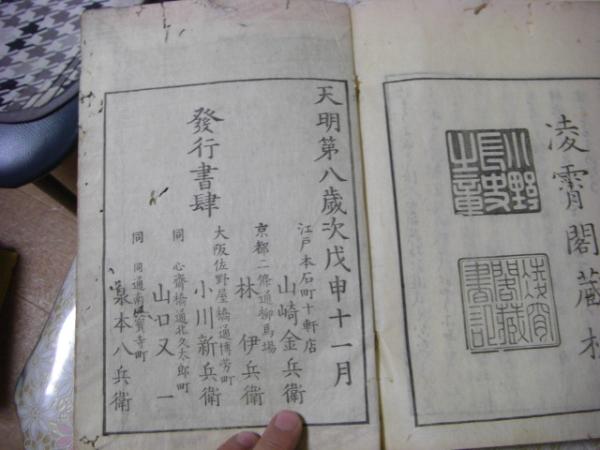 凌霄閣藏
小野
凌霄
閣藏
書記
天明第八歳次戊申十一月
發行書肆
江戸本石町十軒店
山崎金兵衛
京都二條通柳馬場
林伊兵衛
大阪佐野屋橋通博労町
小川新兵衛
同 心齋橋通北久太郎町
山口又一
同 同通南久寶寺町
泉本八兵衛